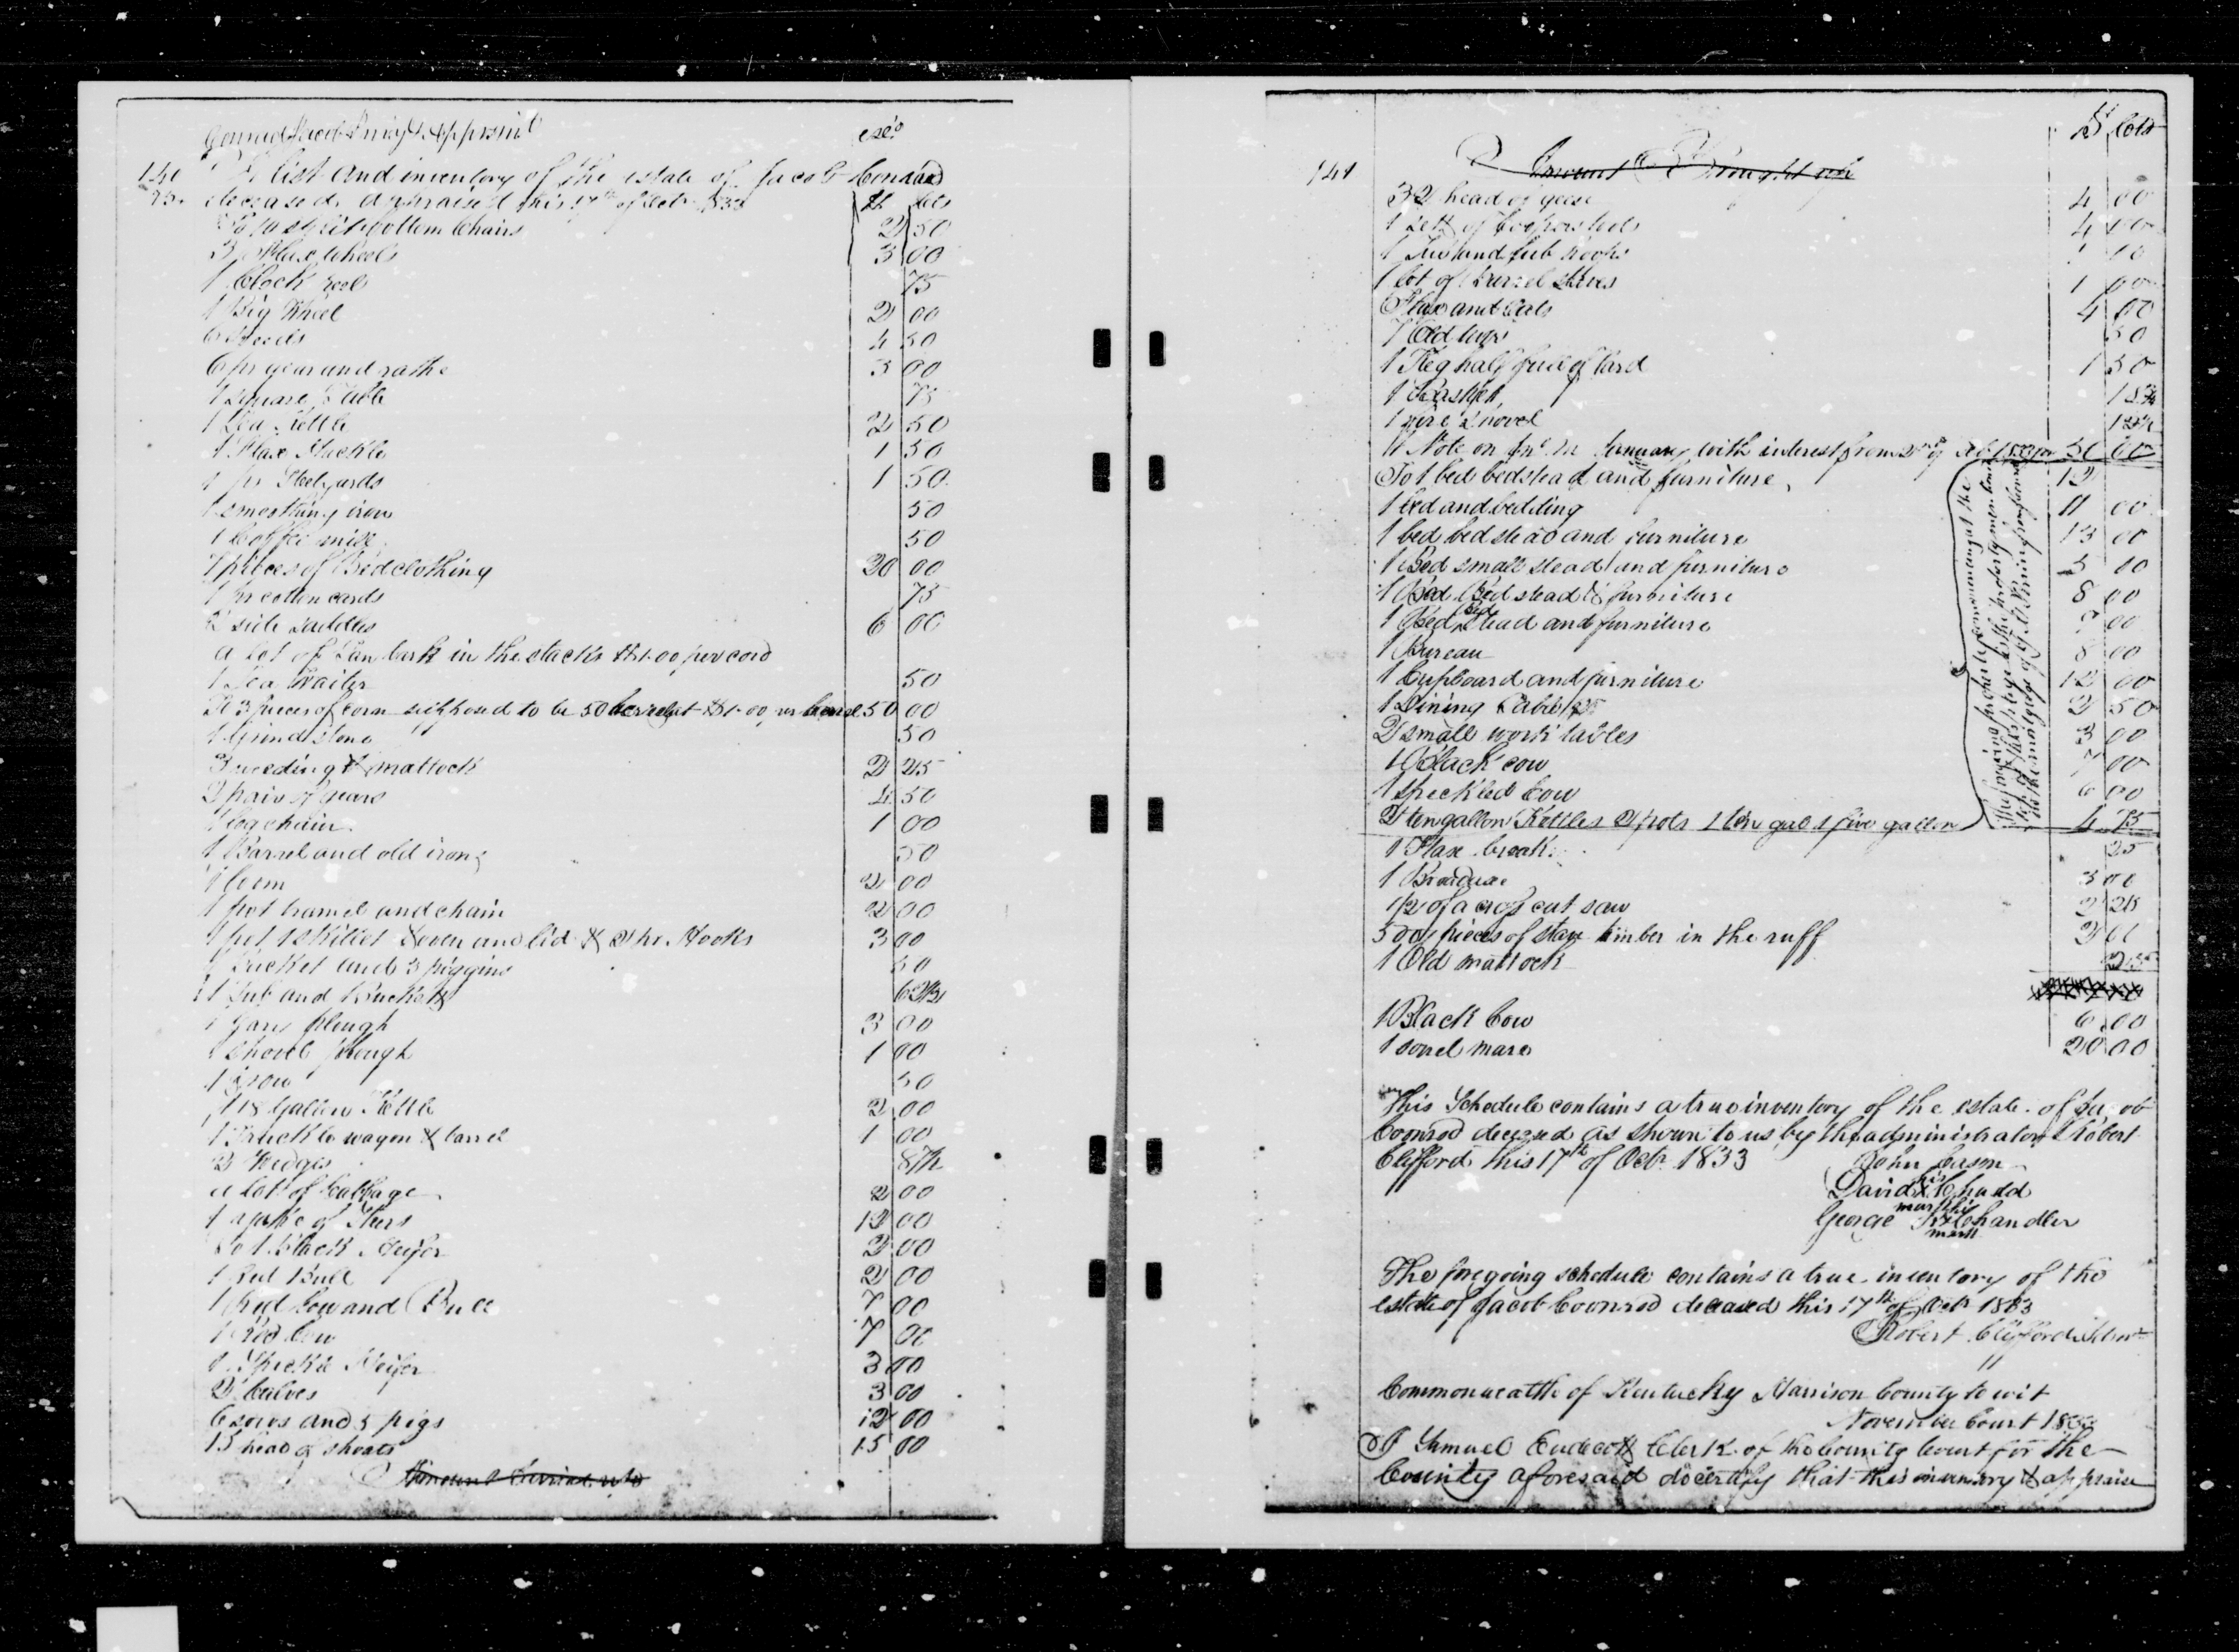 Conrad Jacob Inv & Apprsmt
140 A list and inventory of the estate of Jacob Conrad
deceased appraised this 17th of Octr 1833 $ cts
split bottom Chairs 2 50
3 Flax wheels 3 00
1 Clock reel 75
1 Big Wheel 2 00
6 4 50
6 pr gear and rathe 3 00
1 Square Table 75
1 Tea Kettle 2 50
1 Flax Hackle 1 50
1 pr Steelyards 1 50
1 smoothing iron 50
1 Coffee mill 50
7 pieces of Bedclothing 20 00
1 pr cotton cards 75
2 side saddles 6 00
a lot of Tan bark in the stacks $1.00 per cord
1 Tea Waiter 50
To 3 pieces of corn supposed to be 50 barrels at $1.00 pr barrel 50 00
1 Grind stone 50
3 weeding & mattock 2 25
2 pair of gears 4 50
1 log chain 1 00
1 Barrel and old irons 50
1 loom 2 00
1 pot tramel and chain 2 00
1 pot 1 skillet & oven and lid & 2 pr Hooks 3 00
1 Bucket and 3 piggins 50
1 Tub and Bucket 62½
1 Gary plough 3 00
1 shovel plough 1 00
1 50
1 18 Gallon Kettle 2 00
1 Truckle wagon & barrel 1 00
2 Wedges 87½
a lot of Cabbage 2 00
1 yoke of Steers 12 00
To 1 black Heifer 2 00
1 Red Bull 2 00
1 Red Cow and Bull 7 00
1 Red Cow 7 00
1 Speckle Heifer 3 00
2 Calves 3 00
6 sows and 3 pigs 12 00
15 head of shoats 15 00
Amount Carried up
$ Cts
141 Amount Brought up
32 head of geese 4 00
1 sett of Coopers tools 4 00
1 and tub hoops
1 lot of Barrel staves 1 00
Flax and Oats 4 00
7 Old 50
1 Keg half full of lard 1 50
1 Basket 18¾
1 fire shovel 12½
1 Note on January with interest from
To 1 bed bedstead and furniture 12
1 bed and bedding 11 00
1 bed bedstead and furniture 13 00
1 Bed small stead and furniture 5 00
1 Bed Bed stead & furniture 8 00
1 Bed Bed Stead and furniture 7 00
1 Bureau 8 00
1 Cupboard and furniture 12 00
1 Dining Table 2 50
2 small work tables 3 00
1 Black cow 7 00
1 Speckled Cow 6 00
2 ten gallon Kettles 2 pots 1 ten gal 1 five gallon 4 75
1 Flax break 25
1 Broadaxe 3 00
1/2 of a cross cut saw 2 25
500 pieces of stave timber in the ruff 2 00
1 Old mattock 25
1 Black Cow 6 00
1 sorrel mare 20 00
This Schedule contains a true inventory of the estate of Jacob
Coonrod deceased as shown to us by the administrator Robert
Clifford this 17th of Octr 1833 John Cason
David his x mark Chadd
George his x mark Chandler
The foregoing schedule contains a true inventory of the
estate of Jacob Coonrod deceased this 17th of Octr 1833
Robert Clifford Admr
Commonwealth of Kentucky Harrison County to wit
November Court 1833
I Samuel Endecott Clerk of the County Court for the
County aforesaid do certify that this inventory & appraise